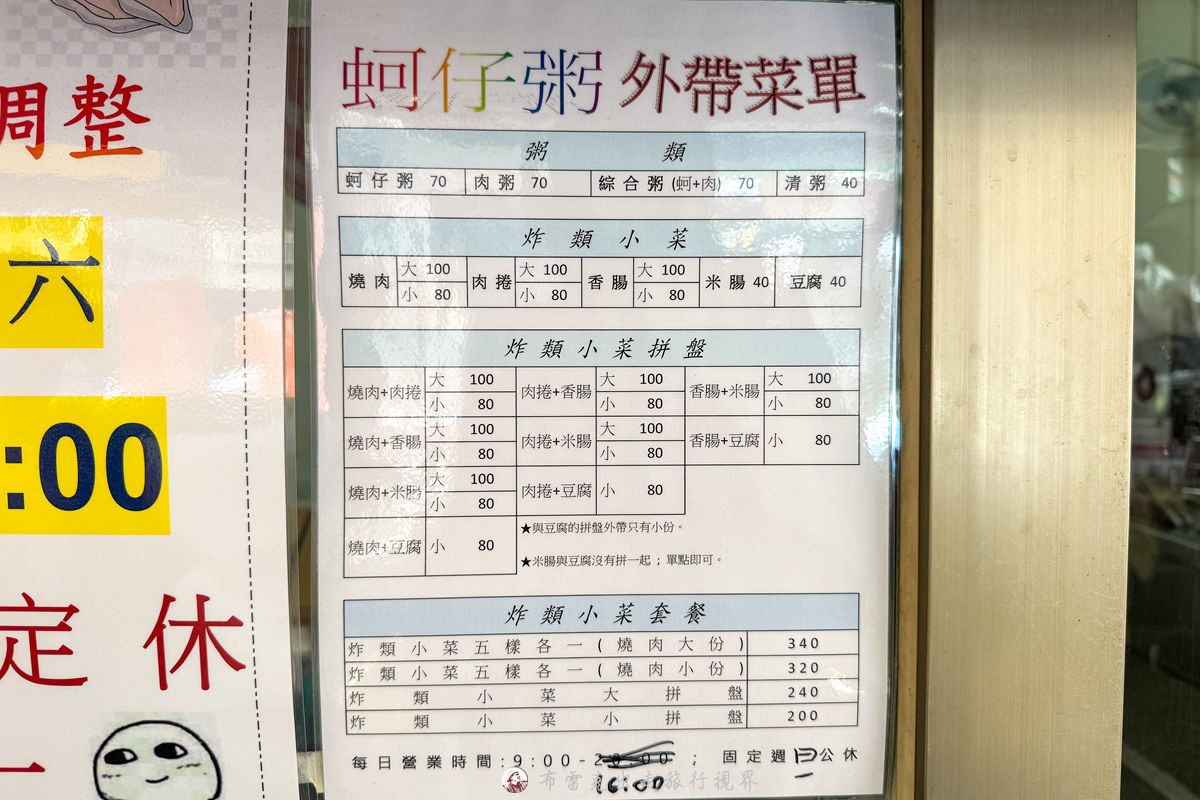 調整
六
:00
定休
一
蚵仔粥 外帶菜單
粥類
蚵仔粥 70 肉粥 70 綜合粥(蚵+肉) 70 清粥 40
炸類小菜
燒肉 大 100 小 80 肉捲 大 100 小 80 香腸 大 100 小 80 米腸 40 豆腐 40
炸類小菜拼盤
燒肉+肉捲 大 100 小 80 肉捲+香腸 大 100 小 80 香腸+米腸 大 100 小 80
燒肉+香腸 大 100 小 80 肉捲+米腸 大 100 小 80 香腸+豆腐 小 80
燒肉+米腸 大 100 小 80 肉捲+豆腐 小 80
燒肉+豆腐 小 80
★與豆腐的拼盤外帶只有小份。
★米腸與豆腐沒有拼一起；單點即可。
炸類小菜套餐
炸類小菜五樣各一(燒肉大份) 340
炸類小菜五樣各一(燒肉小份) 320
炸類小菜大拼盤 240
炸類小菜小拼盤 200
每日營業時間:9:00-20:00；固定週日公休
16:00 一